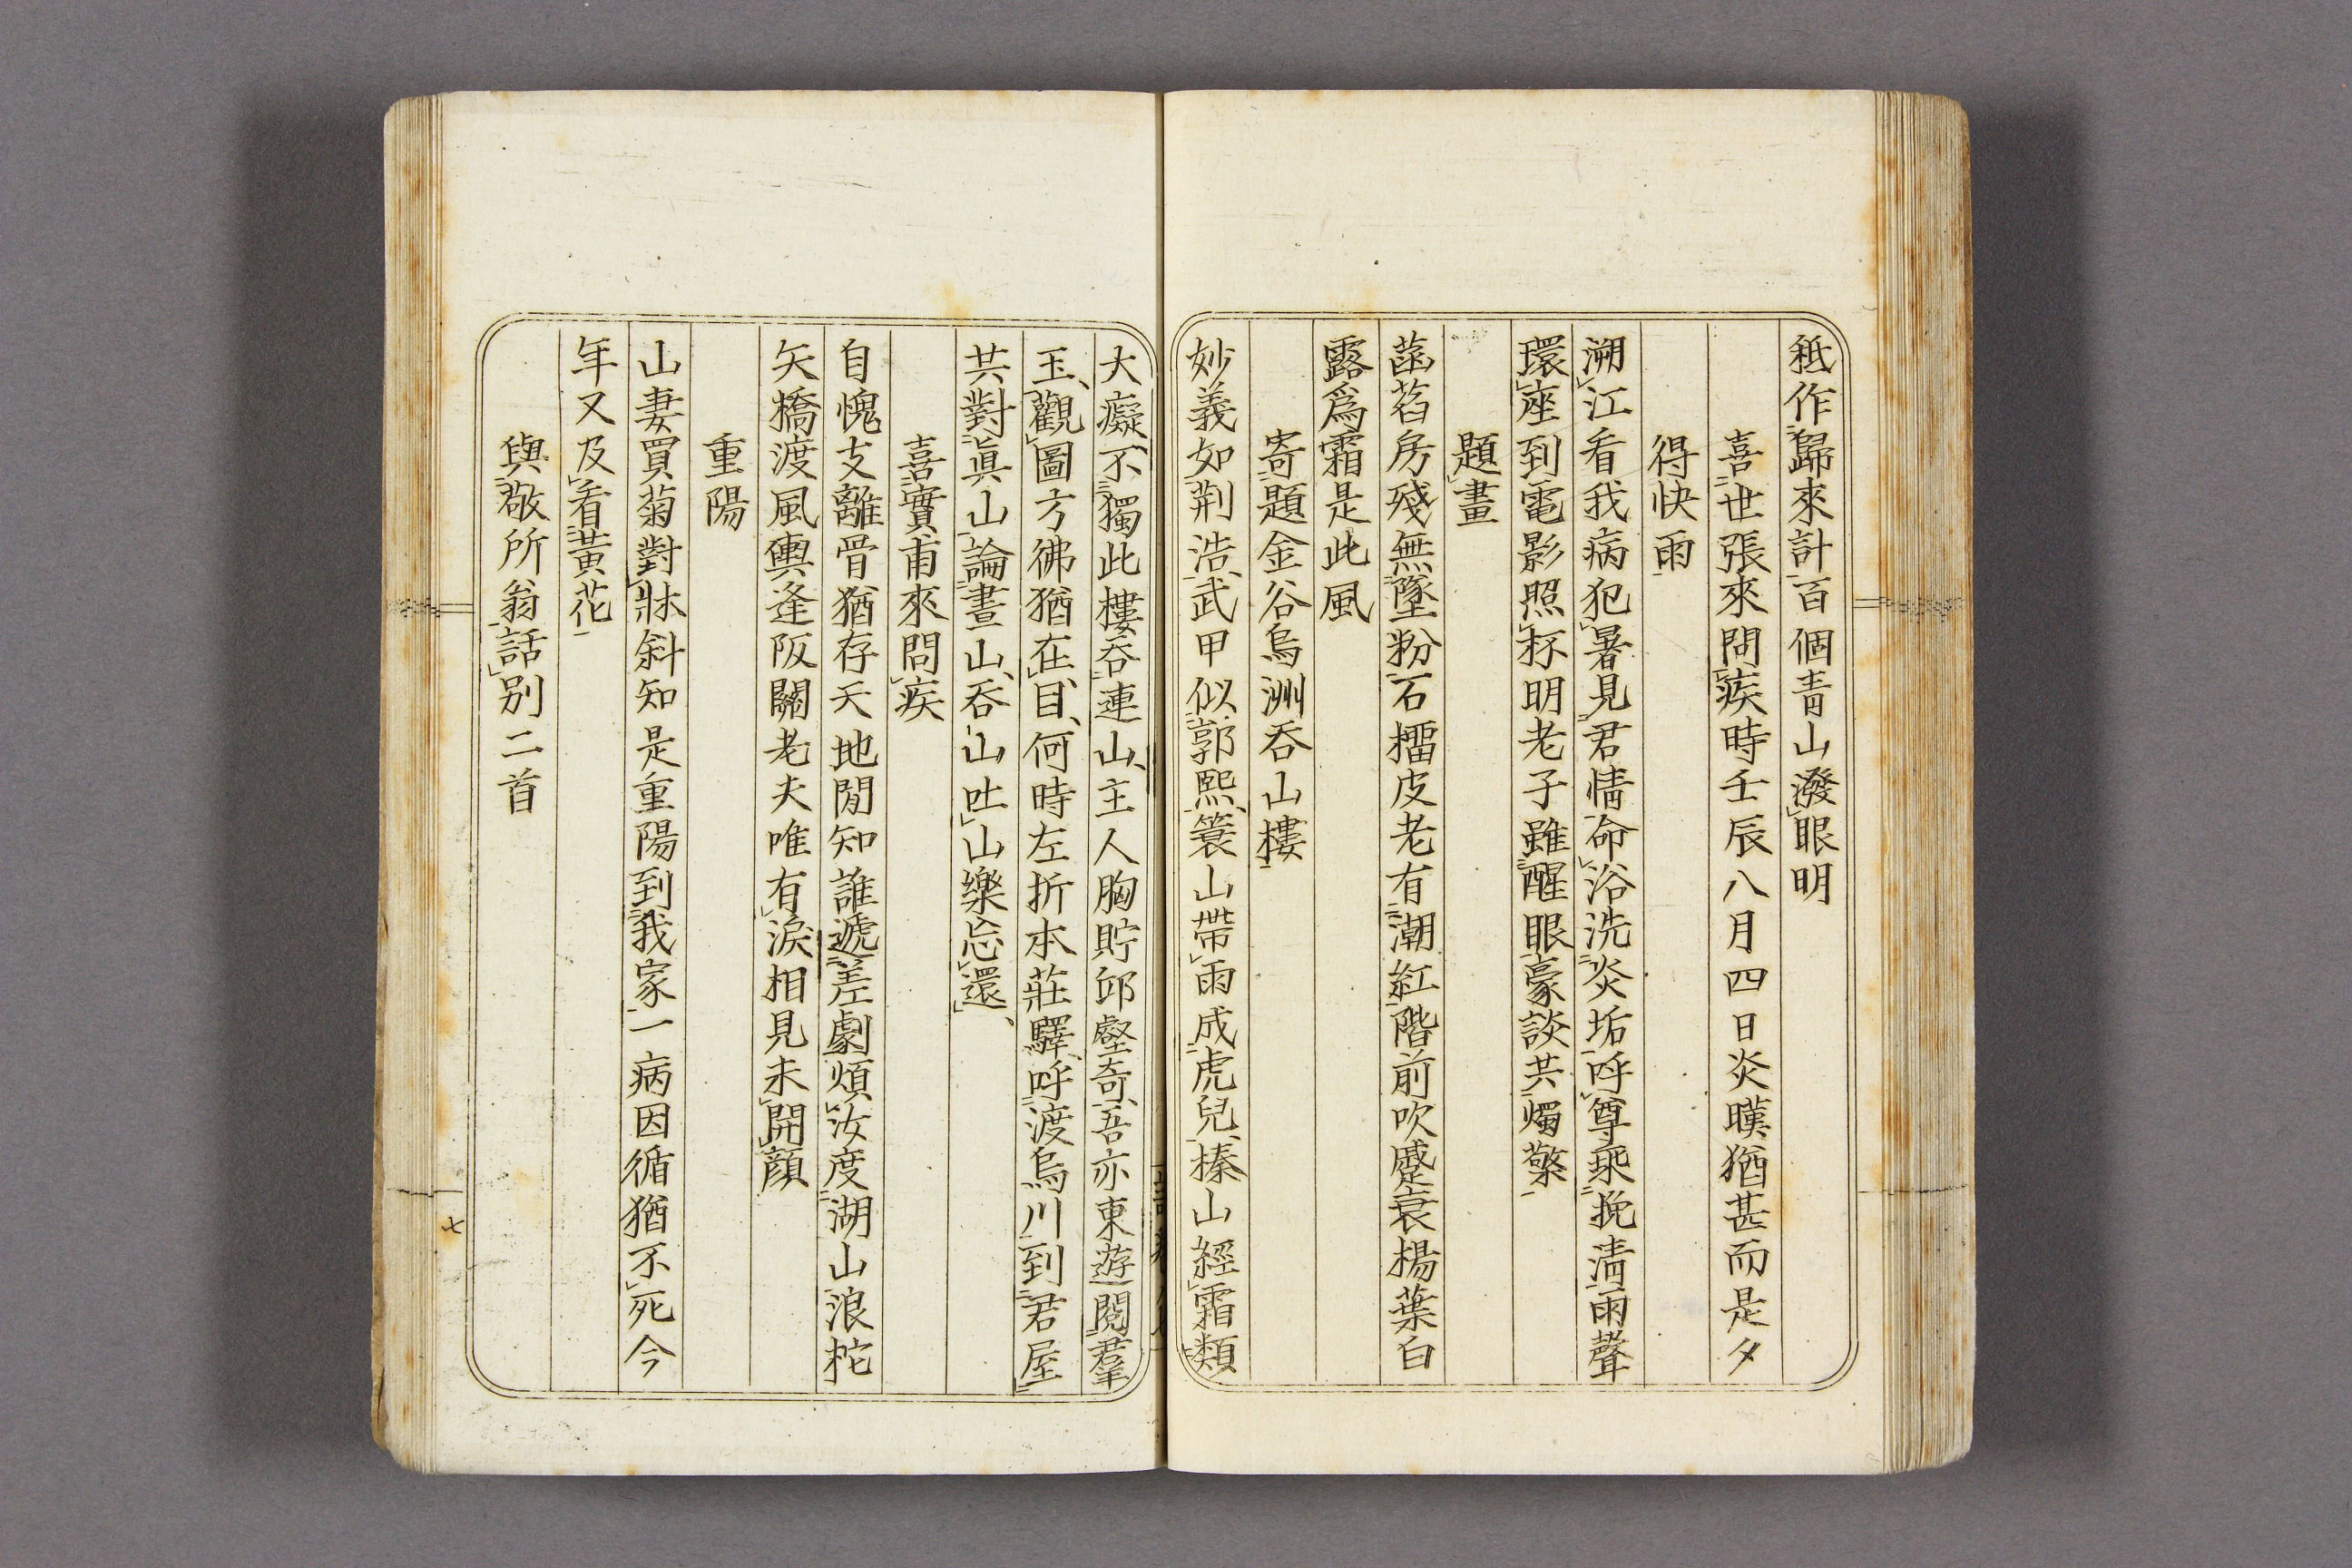 秪作歸來計百個青山潑眼明
喜世張來問疾時壬辰八月四日炎暵猶甚而是夕
得快雨
溯江看我病犯暑見君情命浴洗炎垢呼尊乘挽淸雨聲
環座到電影照杯明老子雖醒眼豪談共燭檠
題畫
菡萏房殘無墜粉石榴皮老有潮紅階前吹蹙衰楊葉白
露爲霜是此風
寄題金谷烏洲呑山樓
妙義如荆浩武甲似郭熙簑山帶雨成虎兒榛山經霜類
大癡不獨此樓呑連山主人胸貯邱壑奇吾亦東遊閱羣
玉觀圖方彿猶在目何時左折本莊驛呼渡烏川到君屋
共對眞山論畫山呑山吐山樂忘還
喜實甫來問疾
自愧支離骨猶存天地閒知誰遞差劇煩汝度湖山浪柁
矢橋渡風輿逢阪關老夫唯有淚相見未開顔
重陽
山妻買菊對牀斜知是重陽到我家一病因循猶不死今
年又及看黃花
與敬所翁話別二首